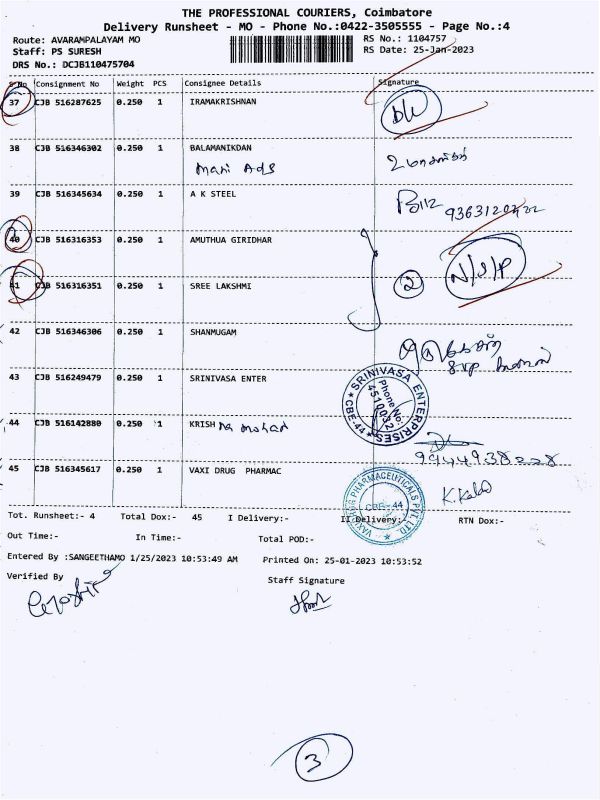 THE PROFESSIONAL COURIERS, Coimbatore
Delivery Runsheet - MO - Phone No.:0422-3505555 - Page No.:4
Route: AVARAMPALAYAM MO
RS No.: 1104757
Staff: PS SURESH
RS Date: 25-Jan-2023
DRS No.: DCJB110475704
S No Consignment No Weight PCS Consignee Details Signature
37 CJB 516287625 0.250 1 IRAMAKRISHNAN
38 CJB 516346302 0.250 1 BALAMANIKDAN
Mani Ads
39 CJB 516345634 0.250 1 A K STEEL
40 CJB 516316353 0.250 1 AMUTHUA GIRIDHAR
2 N/S/P
41 CJB 516316351 0.250 1 SREE LAKSHMI
42 CJB 516346306 0.250 1 SHANMUGAM
43 CJB 516249479 0.250 1 SRINIVASA ENTER
SRINIVASA ENTERPRISES
Phone No.
CBE-44
44 CJB 516142880 0.250 1 KRISH
45 CJB 516345617 0.250 1 VAXI DRUG PHARMAC
PHARMACEUTICALS PVT. LTD
CBE-44
K. Kala
Tot. Runsheet:- 4 Total Dox:- 45 I Delivery:- II Delivery:- RTN Dox:-
Out Time:- In Time:- Total POD:-
Entered By :SANGEETHAMO 1/25/2023 10:53:49 AM Printed On: 25-01-2023 10:53:52
Verified By
Staff Signature
3